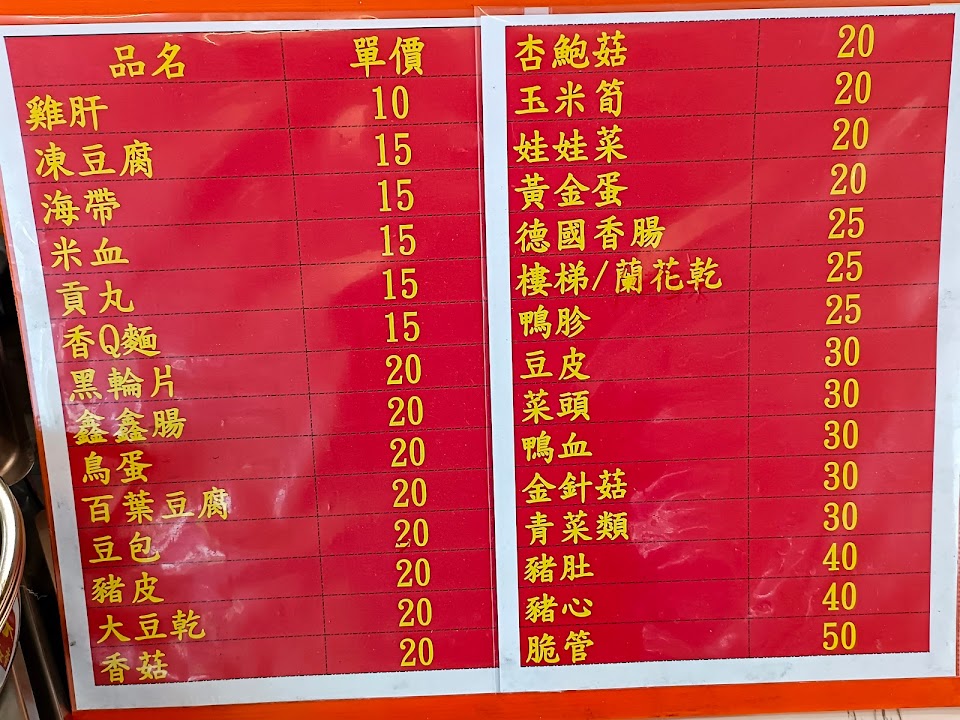 品名 單價
雞肝 10
凍豆腐 15
海帶 15
米血 15
貢丸 15
香Q麵 15
黑輪片 20
鑫鑫腸 20
鳥蛋 20
百葉豆腐 20
豆包 20
豬皮 20
大豆乾 20
香菇 20
杏鮑菇 20
玉米筍 20
娃娃菜 20
黃金蛋 20
德國香腸 25
樓梯/蘭花乾 25
鴨胗 25
豆皮 30
菜頭 30
鴨血 30
金針菇 30
青菜類 30
豬肚 40
豬心 40
脆管 50